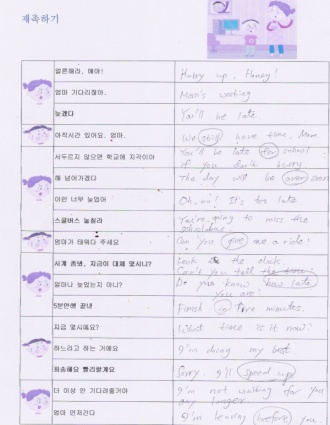 재촉하기
얼른해라, 애야!
Hurry up, Honey!
엄마 기다리잖아.
Mom's waiting
늦겠다
You'll be late
아직시간 있어요, 엄마.
We still have time, Mom
서두르지 않으면 학교에 지각이야
You'll be late for school
if you don't hurry
해 넘어가겠다
The day will be over soon
이런 너무 늦었어
Oh, no! It's too late
스쿨버스 놓칠라
You're going to miss the
schoolbus.
엄마가 태워다 주세요
Can you give me a ride?
시계 좀봐, 지금이 대체 몇시니?
Look at the clock.
Can't you tell the time?
얼마나 늦었는지 아니?
Do you know how late
you are?
5분만에 끝내
Finish in five minutes.
지금 몇시예요?
What time is it now?
하느라고 하는 거예요
I'm doing my best
죄송해요 빨리할게요
Sorry. I'll speed up
더 이상 안 기다려줄거야
I'm not waiting for you
any longer
엄마 먼저간다
I'm leaving before you.